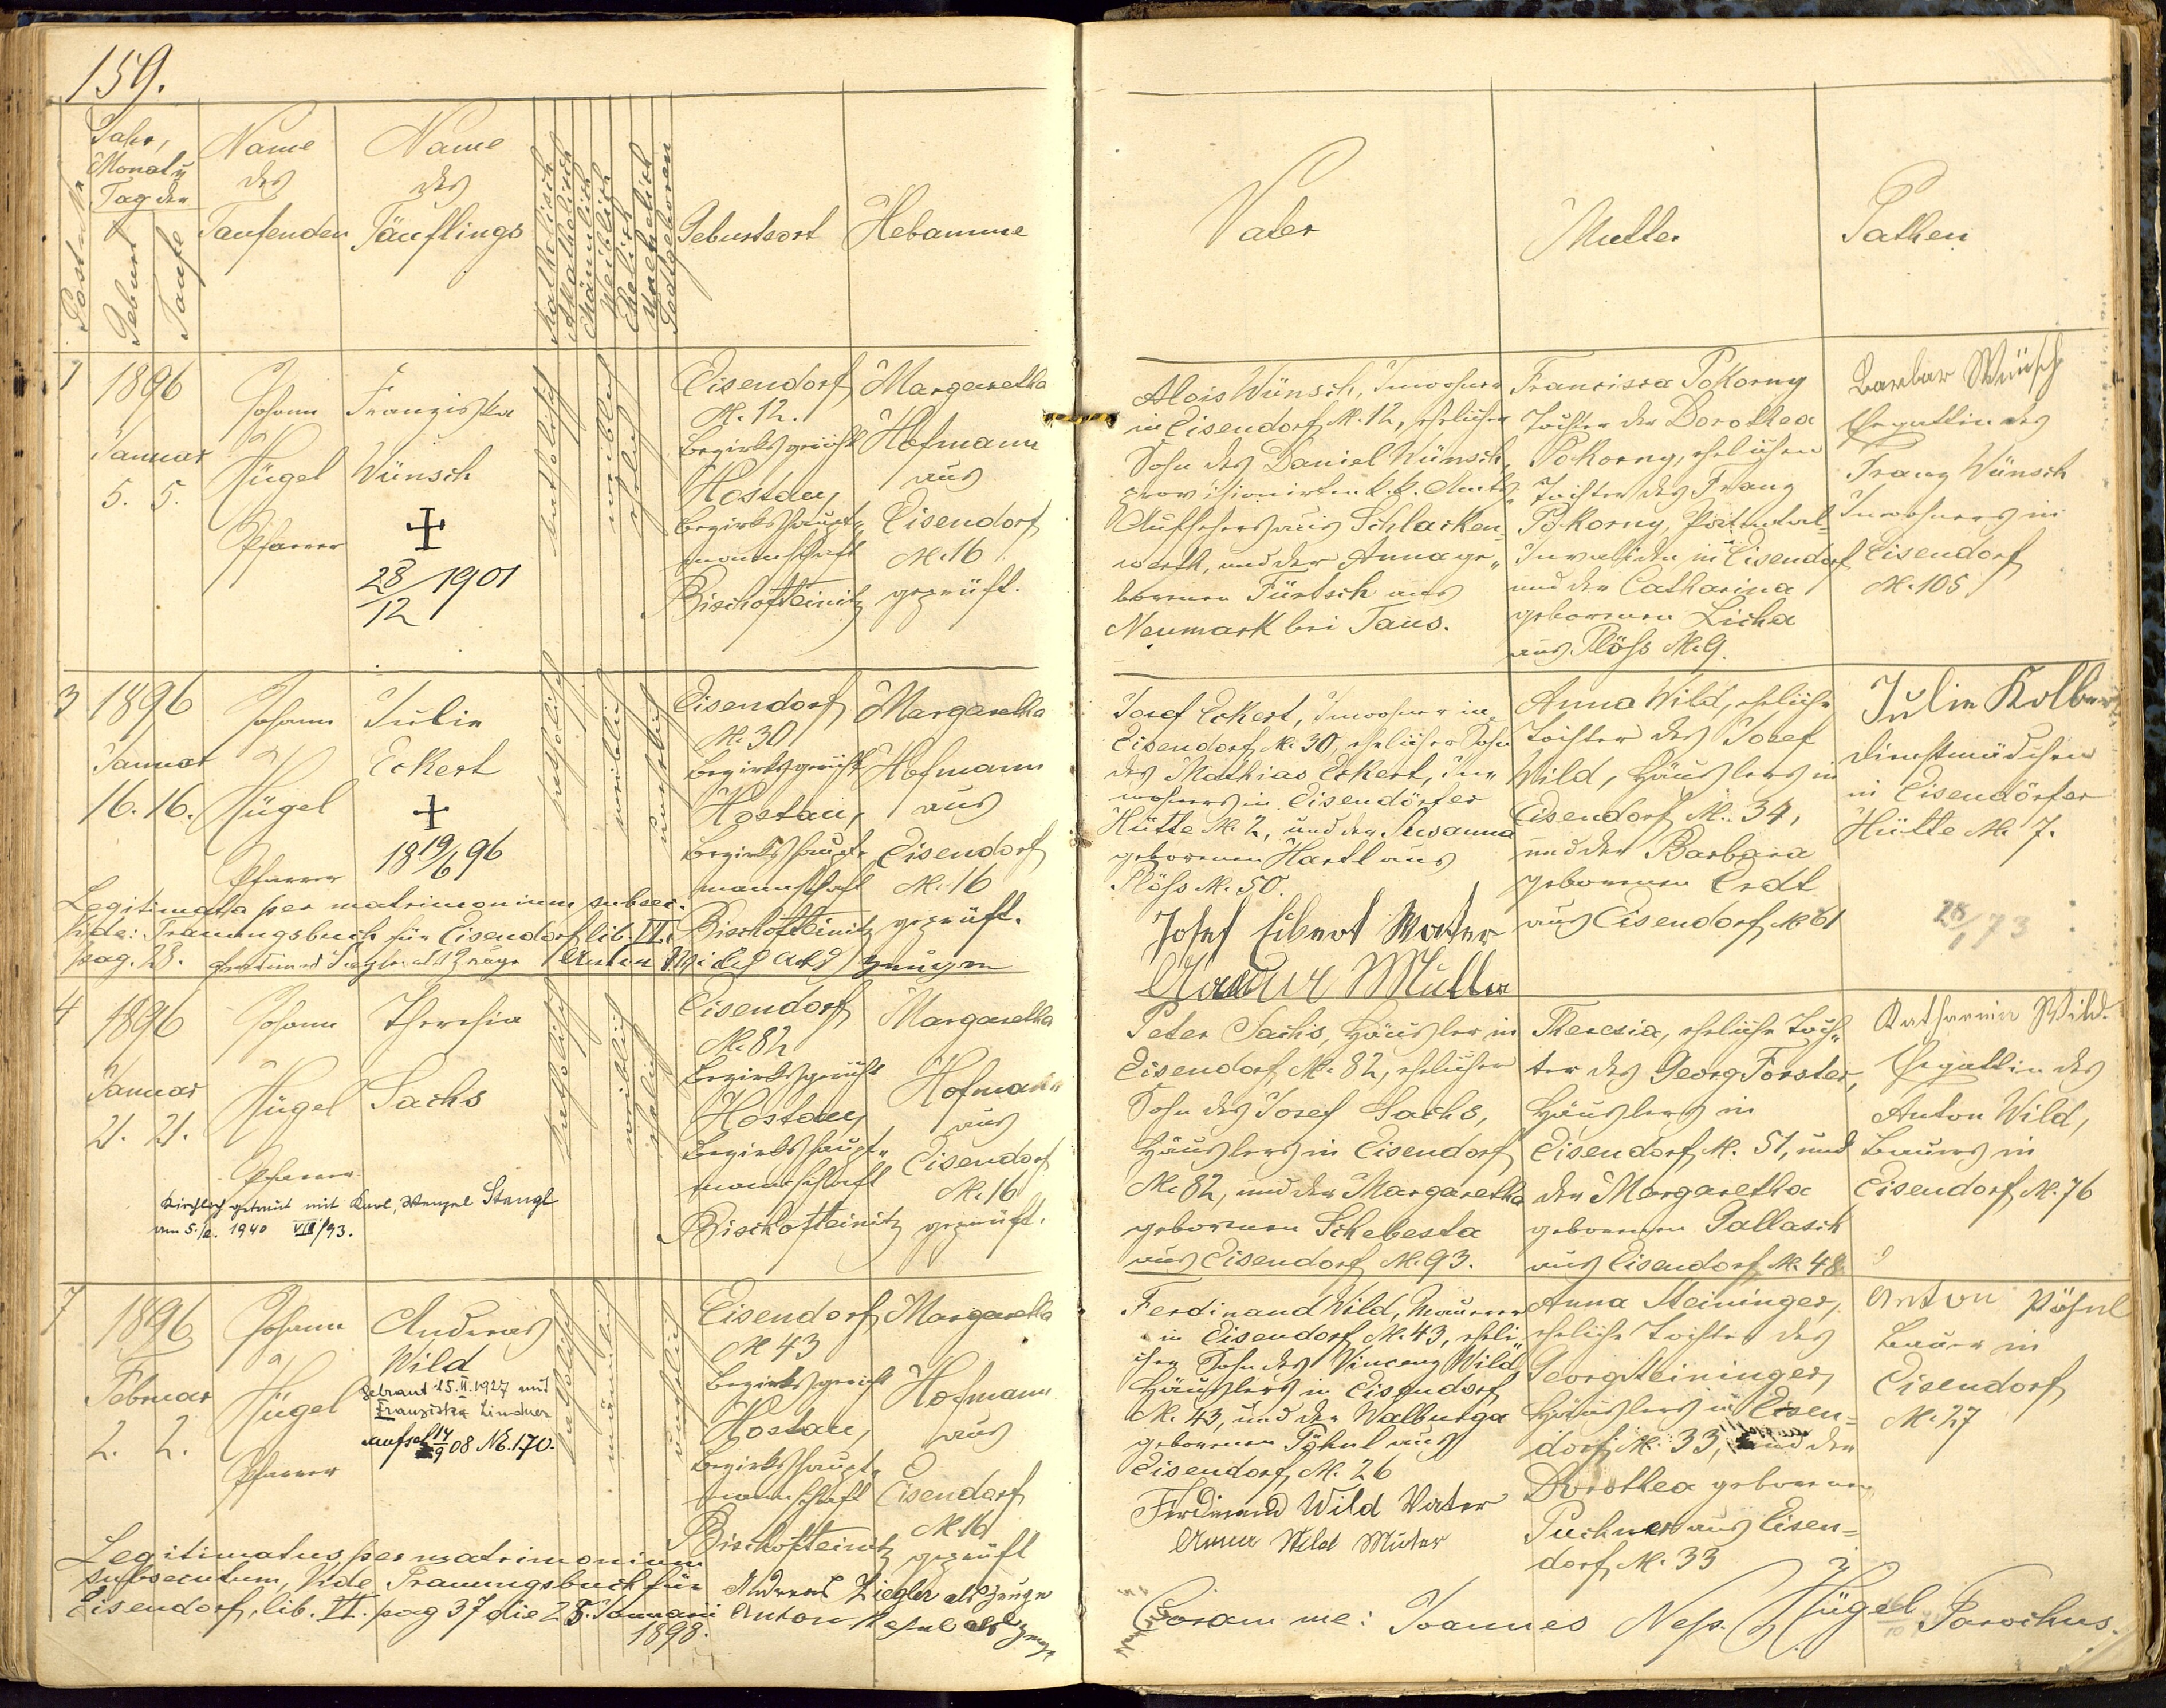 159.
Post-Nr
Jahr,
Monat u
Tag der
Geburt
Taufe
Name
des
Taufenden
Name
des
Täuflings
Katholisch
Akatholisch
Männlich
Weiblich
Ehelich
Unehelich
Todtgeboren
Geburtsort
Hebamme
Vater
Mutter
Pathen
1
1896
Januar
5. 5.
Johann
Hügel
Pfarrer
Franziska
Wünsch
28/12 1901
katholisch
weiblich
ehelich
Eisendorf
N. 12.
Bezirksgericht
Hostau,
Bezirkshaupt-
mannschaft
Bischofteinitz
Margaretha
Hofmann
aus
Eisendorf
N. 16
geprüft.
Alois Wünsch, Inwohner
in Eisendorf N. 12, ehelicher
Sohn des Daniel Wünsch,
provisionirten k. k. Amts-
Aufsehers aus Schlacken-
werth, und der Anna ge-
borenen Fürtsch aus
Neumark bei Taus.
Francisca Pokorny
Tochter der Dorothea
Pokorny, ehelichen
Tochter des Franz
Pokorny, Patental-
Invaliden in Eisendorf
und der Catharina
geborenen Licha
aus Plöss N. 9.
Barbar Wünsch
Gegattin des
Franz Wünsch
Inwohners in
Eisendorf
N. 105
3
1896
Januar
16. 16.
Johann
Hügel
Pfarrer
Julie
Eckert
18 19/6 96
katholisch
weiblich
unehelich
Eisendorf
N. 30
Bezirksgericht
Hostau,
Bezirkshaupt-
mannschaft
Bischofteinitz
Margaretha
Hofmann
aus
Eisendorf
N. 16
geprüft.
Legitimata per matrimonium subsec.
Vide: Trauungsbuch für Eisendorf lib. VI.
pag. 28.
Josef Eckert, Inwohner in
Eisendorf N. 30, ehelicher Sohn
des Mathias Eckert, In-
wohners in Eisendörfer
Hütte N. 2, und der Susanna
geborenen Hartl aus
Plöss N. 50.
Josef Eckert Water
Mutter
Anna Wild, eheliche
Tochter des Josef
Wild, Häuslers in
Eisendorf N. 34,
und der Barbara
geborenen Erdt
aus Eisendorf N. 61
Julie Kolber
Dienstmädchen
in Eisendörfer
Hütte N. 7.
28/1 73
4
1896
Januar
21. 21.
Johann
Hügel
Pfarrer
Theresia
Sachs
Kirchlich getraut mit Karl, Wenzel Stangl
am 5./2. 1940 VIII/93.
katholisch
weiblich
ehelich
Eisendorf
N. 82
Bezirksgericht
Hostau,
Bezirkshaupt-
mannschaft
Bischofteinitz
Margaretha
Hofmann
aus
Eisendorf
N. 16
geprüft.
Peter Sachs, Häusler in
Eisendorf N. 82, ehelicher
Sohn des Josef Sachs,
Häuslers in Eisendorf
N. 82, und der Margaretha
geborenen Schebesta
aus Eisendorf N. 93.
Theresia, eheliche Toch-
ter des Georg Forster,
Häuslers in
Eisendorf N. 51, und
der Margaretha
geborenen Pallasch
aus Eisendorf N. 48
Katharina Wild.
Gegattin des
Anton Wild,
Bauers in
Eisendorf N. 76
7
1896
Februar
2. 2.
Johann
Hügel
Pfarrer
Andreas
Wild
Getraut 15.II.1927 mit
Franziska Lindner
14/9 08 NE. 170.
katholisch
männlich
unehelich
Eisendorf
N 43
Bezirksgericht
Hostau,
Bezirkshaupt-
mannschaft
Bischofteinitz
Margaretha
Hofmann
aus
Eisendorf
N. 16
geprüft
Legitimatus per matrimonium
subsecutum, Vide Trauungsbuch für
Eisendorf, lib. VI. pag 37 die 25. Januarii
1898.
Andreas Ziegler als Zeuge
Ferdinand Wild, Maurer
in Eisendorf N. 43, eheli-
cher Sohn des Vincenz Wild
Häuslers in Eisendorf
N. 43, und der Walburga
geborenen Pöhnl aus
Eisendorf N. 26
Ferdinand Wild Vater
Anna Wild Muter
Anna Steininger,
eheliche Tochter des
Georg Steininger,
Häuslers in Eisen-
dorf N. 33, und der
Dorothea geborenen
Puchner aus Eisen-
dorf N. 33
Anton Pöhnl
Bauer in
Eisendorf
N. 27
Coram me: Joannes Nep. Hügel Parochus.